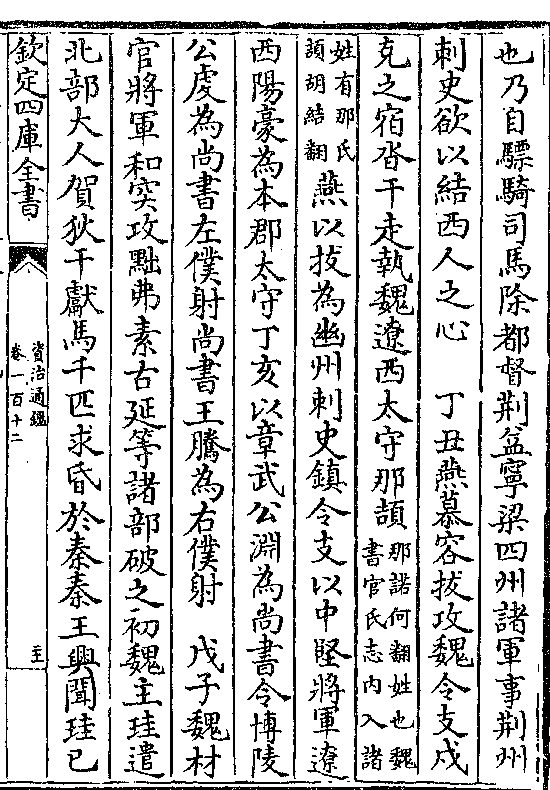 也乃自驃騎司馬除都督荆益寧梁四州諸軍事荆州
刺史欲以結西人之心　丁丑燕慕容拔攻魏令支戍
克之宿沓干走執魏遼西太守那頡那諾何翻姓也魏書官氏志内入諸
姓有那氏頡胡結翻燕以拔為幽州刺史鎮令支以中堅將軍遼
西陽豪為本郡太守丁亥以章武公淵為尚書令博陵
公虔為尚書左僕射尚書王騰為右僕射　戊子魏材
官將軍和突攻黜弗素古延等諸部破之初魏主珪遣
北部大人賀狄干獻馬千匹求昏於秦秦王興聞珪已
欽定四庫全書
資治通鑑
卷一百十二
主